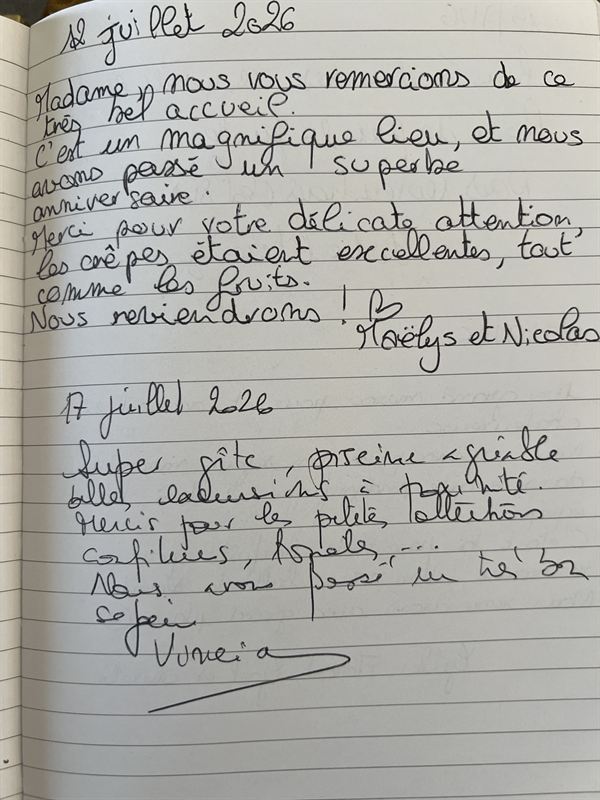 12 juillet 2026
Madame, nous vous remercions de ce
très bel accueil.
C'est un magnifique lieu, et nous
avons passé un superbe
anniversaire.
Merci pour votre délicate attention,
les crêpes étaient excellentes, tout
comme les fruits.
Nous reviendrons !
Maëlys et Nicolas
17 juillet 2026
Super gîte, piscine agréable
belles excursions à proximité.
Mercis pour les petites attentions
confitures, ...
Nous avons passé un très bon
séjour